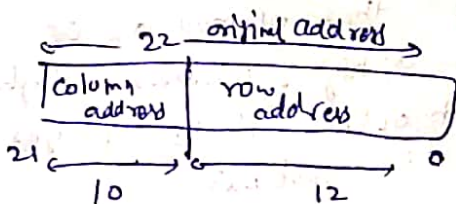 22 original address
column address
row address
21
0
10
12